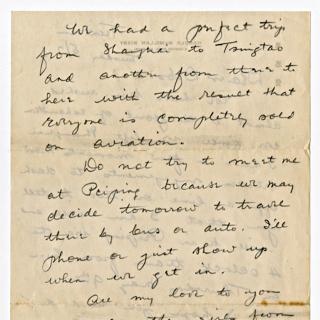 We had a perfect trip
from Shanghai to Tsingtao
and another from there to
here with the result that
everyone is completely sold
on aviation.
Do not try to meet me
at Peiping because we may
decide tomorrow to travel
there by bus or auto. I'll
phone or just show up
when we get in.
All my love to you
the girls from